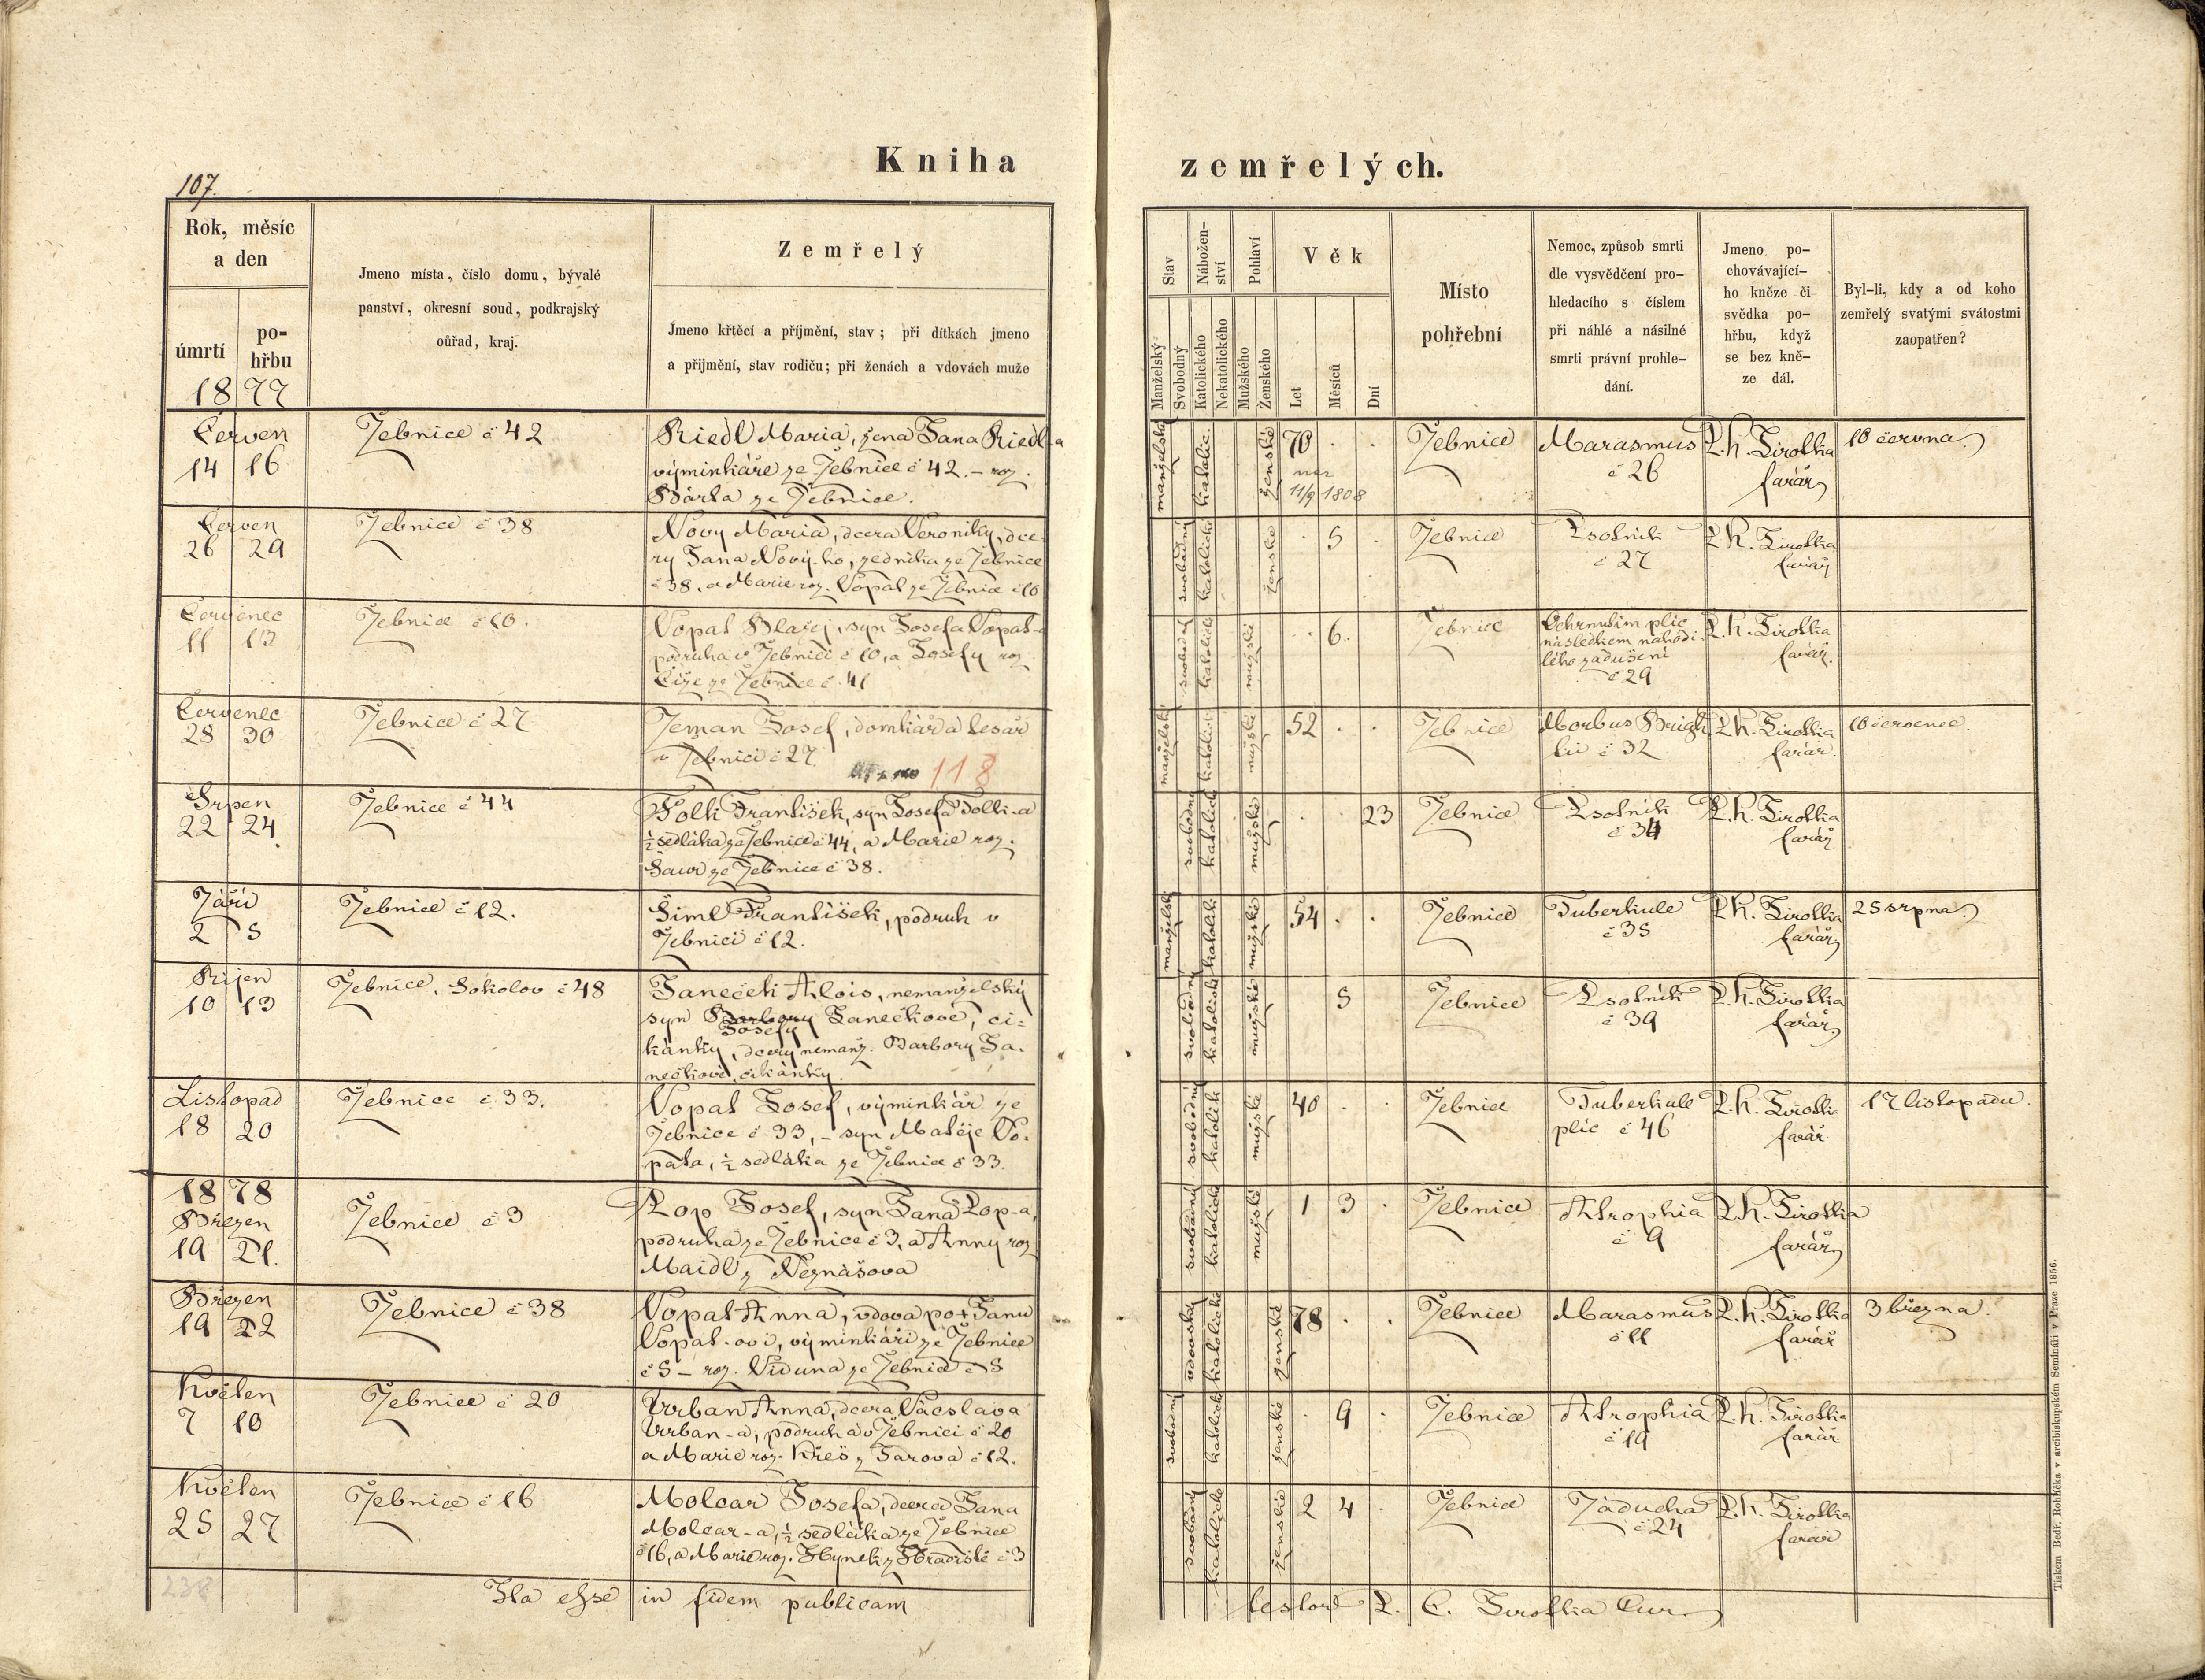 Kniha zemřelých.
107.
Rok, měsíc
a den
úmrtí
po-
hřbu
18 77
Jmeno místa, číslo domu, bývalé
panství, okresní soud, podkrajský
ouřad, kraj.
Zemřelý
Jmeno křtěcí a příjmění, stav; při dítkách jmeno
a příjmění, stav rodičů; při ženách a vdovách muže
Stav
Manželský
Svobodný
Nábožen-
ství
Katolického
Nekatolického
Pohlaví
Mužského
Ženského
Věk
Let
Měsíců
Dní
Místo
pohřební
Nemoc, způsob smrti
dle vysvědčení pro-
hledacího s číslem
při náhlé a násilné
smrti právní prohle-
dání.
Jmeno po-
chovávající-
ho kněze či
svědka po-
hřbu, když
se bez kně-
ze dál.
Byl-li, kdy a od koho
zemřelý svatými svátostmi
zaopatřen?
Červen
14 16
Žebnice č 42
Riedl Maria, žena Jana Riedl-a
výminkáře ze Žebnice č 42. – roz.
Bárta ze Žebnice.
manželská katolic. ženské 70 . .
nar
11/9 1808
Žebnice
Marasmus
č 26
P. h. Sirotka
farář
10 června
Červen
26 29
Žebnice č 38
Nový Maria, dcera Veroniky, dce-
ry Jana Nový-ho, zedníka ze Žebnice
č 38, a Marie roz. Vopat ze Žebnice č 10
svobodný katolické ženské . 5 .
Žebnice
Psotník
č 27
P. h. Sirotka
farář
Červenec
11 13
Žebnice č 10.
Vopat Blažej, syn Josefa Vopat-a
podruha v Žebnici č 10, a Josefy roz
Číže ze Žebnice č. 41
svobodný katolické mužské . 6.
Žebnice
Ochrnutím plic
následkem nahodi-
lého zadušení
č 29
P. h. Sirotka
farář.
Červenec
28 30
Žebnice č 27
Zeman Josef, domkář a tesař
v Žebnici č 27.
118
manželský katolické mužské 52 . .
Žebnice
Morbus Brigh-
tii č 32
P. h. Sirotka
farář.
10 červenec.
Srpen
22 24.
Žebnice č 44
Tolk František, syn Josefa Tolk-a
½ sedláka ze Žebnice č 44, a Marie roz.
Saur ze Žebnice č 38.
svobodný katolické mužské . . 23
Žebnice
Psotník
č 34
P. h. Sirotka
farář
Září
2 5
Žebnice č 12.
Siml František, podruh v
Žebnici č 12.
manželský katolick mužské 54 . .
Žebnice
Tuberkule
č 35
P. h. Sirotka
farář
25 srpna
Říjen
10 13
Žebnice, Sokolov č 48
Janeček Alois, nemanželský
syn Barbory Janečkové, ci-
Josefy
kánky, dcery nemanž. Barbory Ja-
nečkové, cikánky.
svobodný katolické mužské 5
Žebnice
Psotník
č 39
P. h. Sirotka
farář
Listopad
18 20
Žebnice č 33.
Vopat Josef, výminkář ze
Žebnice č 33, – syn Matěje Vo-
pata, ½ sedláka ze Žebnice č 33.
svobodný katolick mužské 40 . .
Žebnice
Tuberkule
plic č 46
P. h. Sirotka
farář
17 listopadu.
18 78
Březen
19 21.
Žebnice č 3
Pop Josef, syn Jana Pop-a,
podruha ze Žebnice č 3, a Anny roz
Maidl z Neznášova
svobodný katolické mužské 1 3 .
Žebnice
Atrophia
č 9
P. h. Sirotka
farář
Březen
19 22
Žebnice č 38
Vopat Anna, vdova po † Janu
Vopat-ovi, výminkáři ze Žebnice
č 5 – roz. Viduna ze Žebnice č 5
vdovská katolické ženské 78 . .
Žebnice
Marasmus
č 11
P. h. Sirotka
farář
3 března.
Květen
7 10
Žebnice č 20
Vrban Anna, dcera Václava
Vrban-a, podruha v Žebnici č 20
a Marie roz. Kreš z Jarova č 12.
svobodný katolick ženské . 9 .
Žebnice
Atrophia
č 19
P. h. Sirotka
farář
Květen
25 27
Žebnice č 16
Molcar Josefa, dcera Jana
Molcar-a, ½ sedláka ze Žebnice
č 16, a Marie roz. Hynek z Hradiště č 3
svobodný katolické ženské 2 4 .
Žebnice
Záducha
č 24
P. h. Sirotka
farář
238
Ita esse in fidem publicam testor P. C. Sirotka Cur.
Tiskem Bedř. Rohlíčka v arcibiskupském Semináři v Praze 1856.